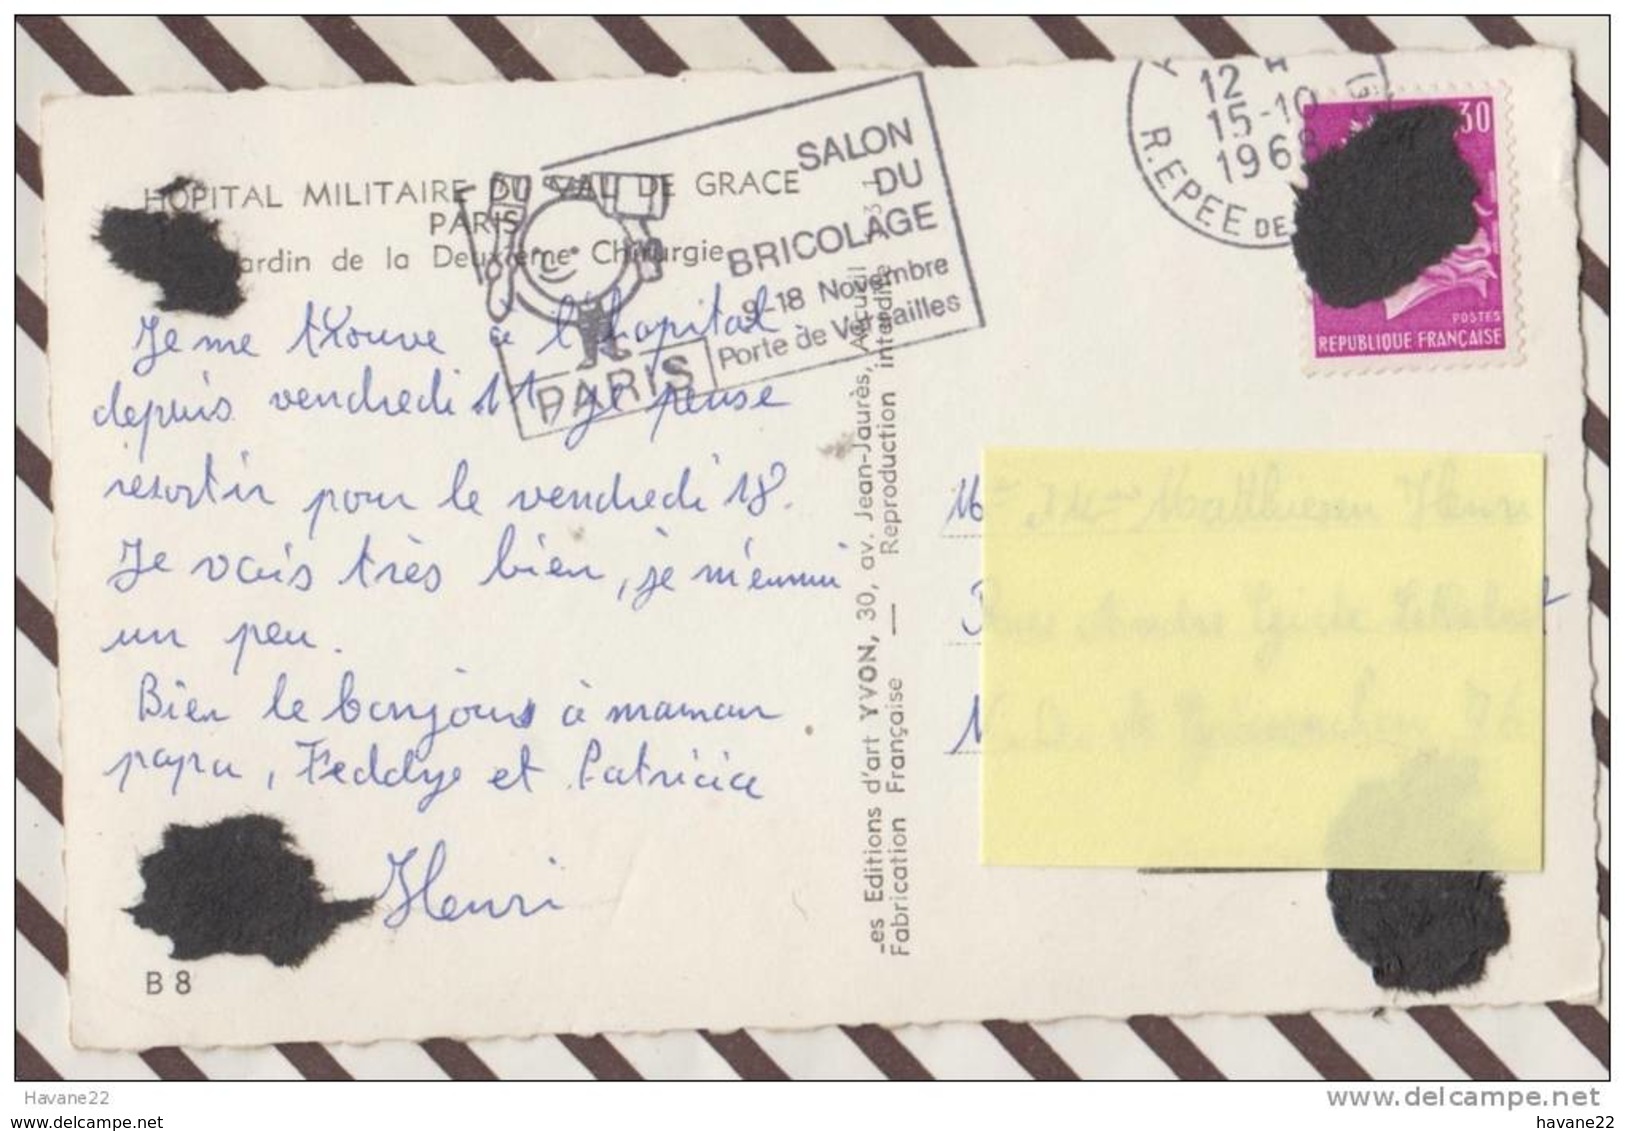 HOPITAL MILITAIRE DU VAL DE GRACE
PARIS
ardin de la Deuxième Chirurgie
SALON
DU
BRICOLAGE
9-18 Novembre
Porte de Versailles
PARIS
12 H
15-10
1968
R.EPEE DE
30
POSTES
REPUBLIQUE FRANÇAISE
Je me trouve à l'hopital
depuis vendredi 11, je pense
resortir pour le vendredi 18.
Je vais très bien, je m'ennui
un peu.
Bien le bonjours à maman
papa, Feddye et Patricia
Henri
B 8
es Editions d'art YVON, 30, av. Jean-Jaurès, Arcueil
Fabrication Française — Reproduction interdite
Havane22
www.delcampe.net
havane22
havane22